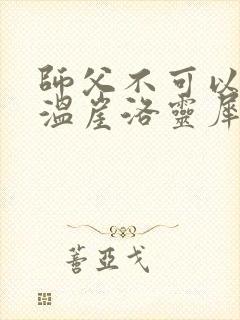 師父不可以
溫崖洛靈犀
蓍亞戈